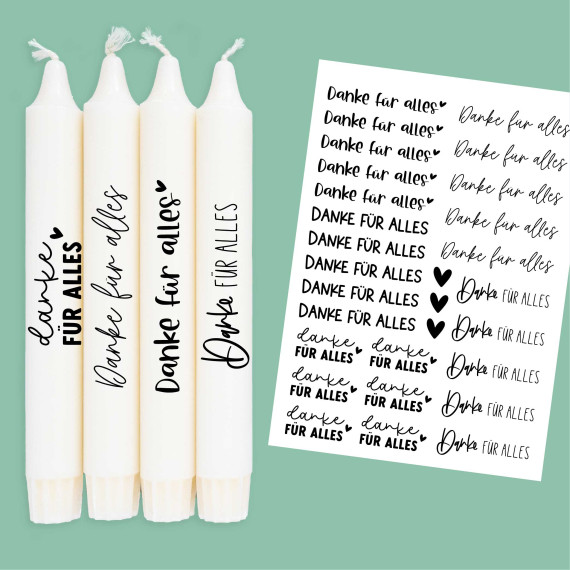 danke
FÜR ALLES
Danke für alles
Danke für alles
Danke FÜR ALLES
Danke für alles
Danke für alles
Danke für alles
Danke für alles
Danke für alles
DANKE FÜR ALLES
DANKE FÜR ALLES
DANKE FÜR ALLES
DANKE FÜR ALLES
DANKE FÜR ALLES
danke
FÜR ALLES
danke
FÜR ALLES
danke
FÜR ALLES
danke
FÜR ALLES
danke
FÜR ALLES
danke
FÜR ALLES
Danke für alles
Danke für alles
Danke für alles
Danke für alles
Danke für alles
Danke FÜR ALLES
Danke FÜR ALLES
Danke FÜR ALLES
Danke FÜR ALLES
Danke FÜR ALLES